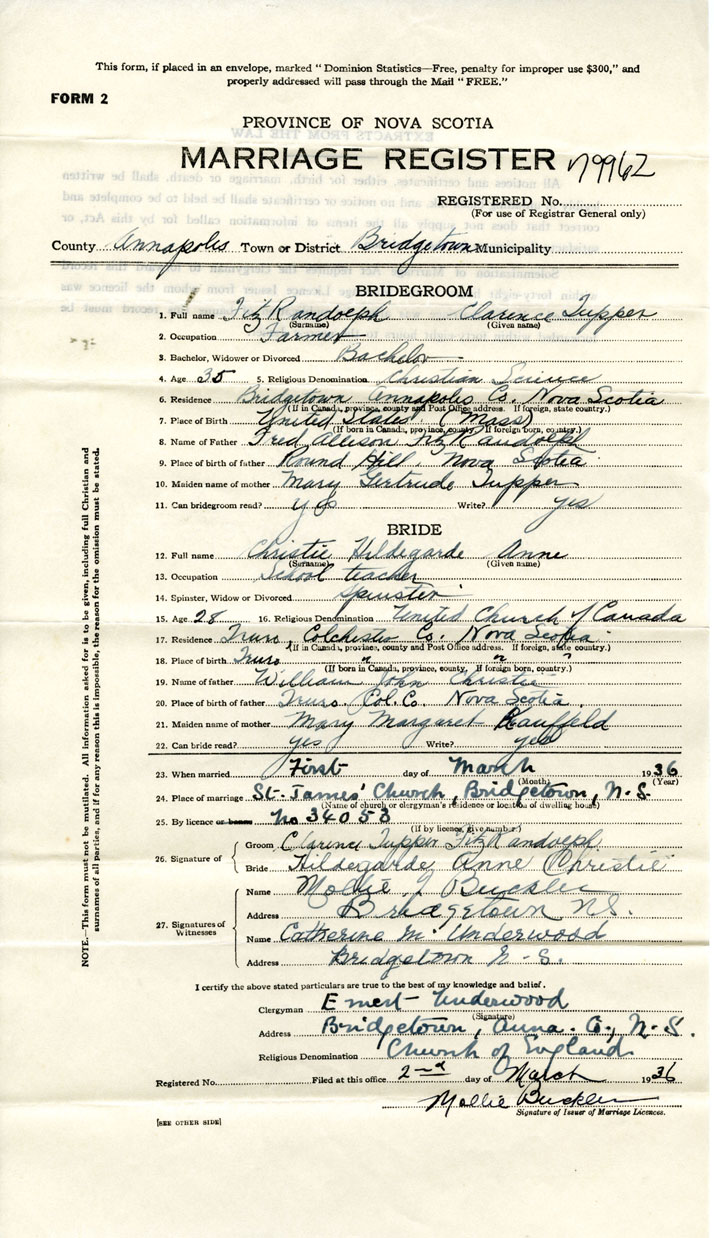 This form, if placed in an envelope, marked "Dominion Statistics—Free, penalty for improper use $300," and
properly addressed will pass through the Mail "FREE."
FORM 2
PROVINCE OF NOVA SCOTIA
MARRIAGE REGISTER 79962
REGISTERED No.
(For use of Registrar General only)
County Annapolis Town or District Bridgetown Municipality
BRIDEGROOM
1. Full name FitzRandolph Clarence Tupper
(Surname) (Given name)
2. Occupation Farmer
3. Bachelor, Widower or Divorced Bachelor
4. Age 35 5. Religious Denomination Christian Science
6. Residence Bridgetown Annapolis Co. Nova Scotia
(If in Canada, province, county and Post Office address. If foreign, state country.)
7. Place of Birth United States (Mass)
(If born in Canada, province, county. If foreign born, country.)
8. Name of Father Fred Allison FitzRandolph
9. Place of birth of father Round Hill, Nova Scotia
10. Maiden name of mother Mary Gertrude Tupper
11. Can bridegroom read? yes Write? yes
BRIDE
12. Full name Christie Hildegarde Anne
(Surname) (Given name)
13. Occupation School teacher
14. Spinster, Widow or Divorced Spinster
15. Age 28 16. Religious Denomination United Church of Canada
17. Residence Truro, Colchester Co. Nova Scotia
(If in Canada, province, county and Post Office address. If foreign, state country.)
18. Place of birth Truro " " "
(If born in Canada, province, county, If foreign born, country.)
19. Name of father William John Christie
20. Place of birth of father Truro. Col. Co. Nova Scotia.
21. Maiden name of mother Mary Margaret
22. Can bride read? yes Write? yes
23. When married First day of March 1936
(Month) (Year)
24. Place of marriage St. James' Church, Bridgetown, N.S.
(Name of church or clergyman's residence or location of dwelling house)
25. By licence or banns No 34053
(If by licence, give number.)
26. Signature of
Groom Clarence Tupper FitzRandolph
Bride Hildegarde Anne Christie
27. Signatures of Witnesses
Name Mollie J Buckler
Address Bridgetown N.S.
Name Catherine M. Underwood
Address Bridgetown N.S.
I certify the above stated particulars are true to the best of my knowledge and belief.
Clergyman Ernest Underwood
(Signature)
Address Bridgetown, Anna. Co., N.S.
Religious Denomination Church of England
Registered No. Filed at this office 2nd day of March 1936
Mollie Buckler
Signature of Issuer of Marriage Licences.
[SEE OTHER SIDE]
NOTE.—This form must not be mutilated. All information asked for is to be given, including full Christian and
surnames of all parties, and if for any reason this is impossible, the reason for the omission must be stated.